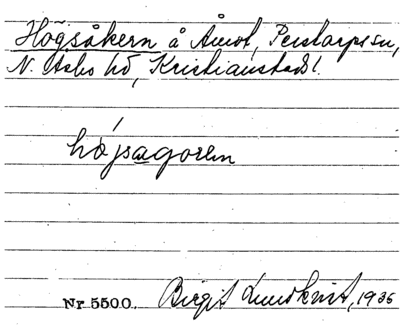 Högsåkern å Åmot, Perstorps sn,
N. Åsbo hd, Kristianstads l.
håjsagoren
Nr 5500. Birgit Lundkvist, 1936